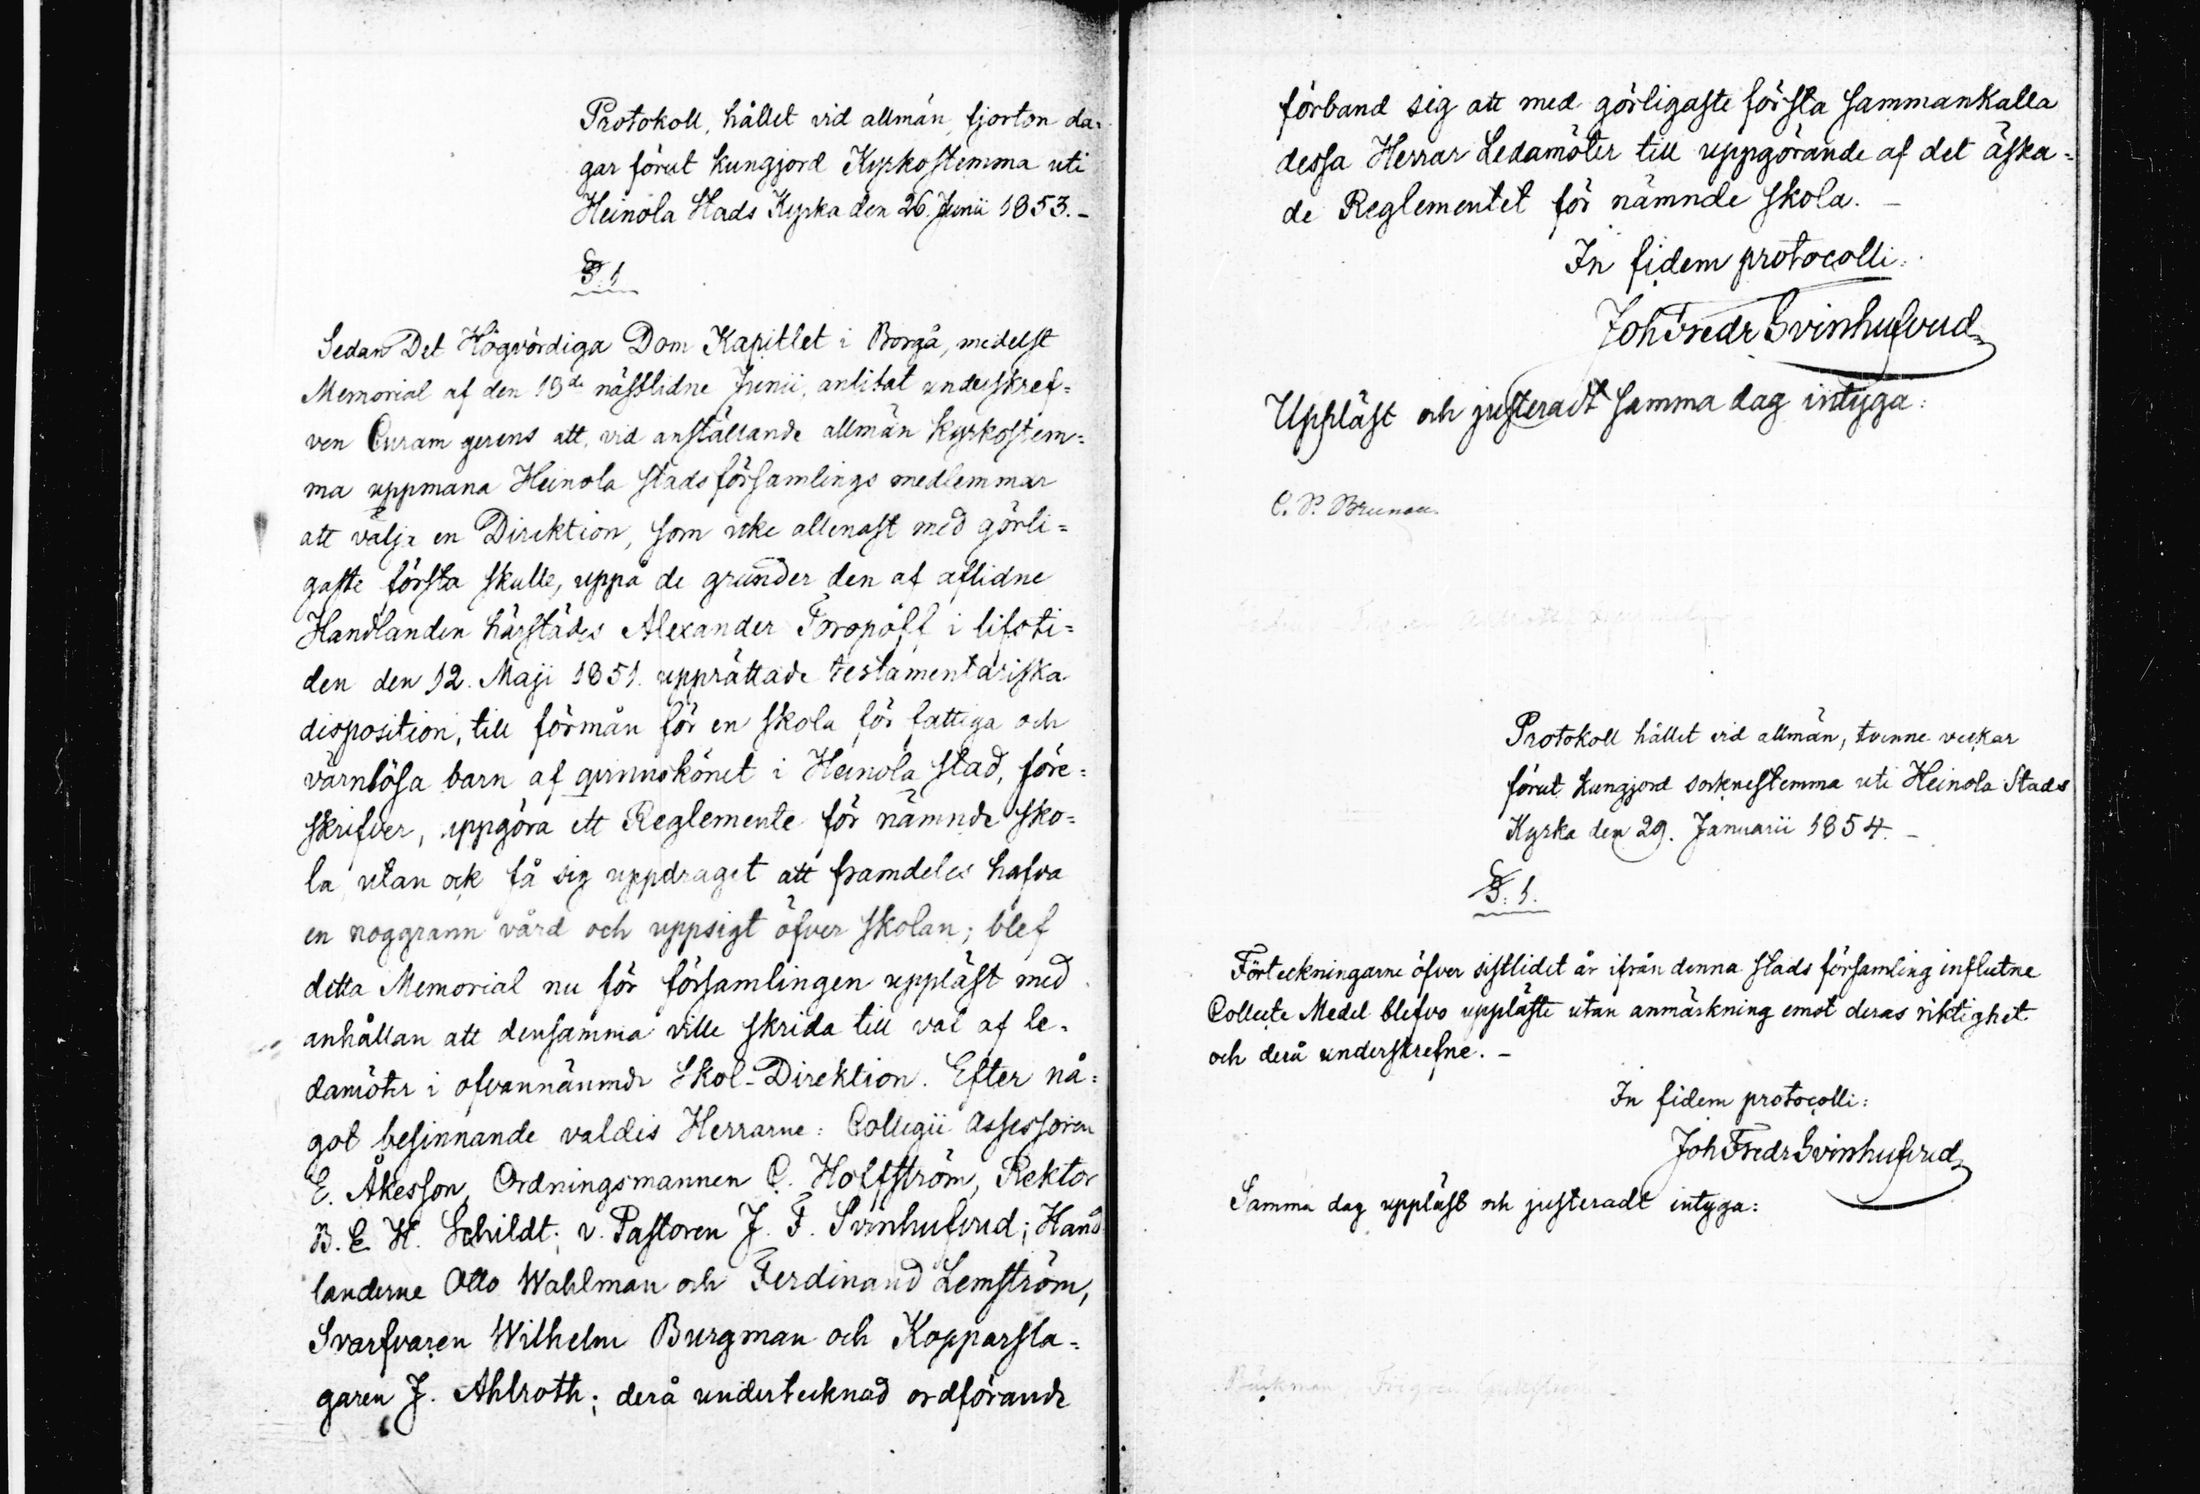 Protokoll, hållet vid allmän, fjorton da-
gar förut kungjord Kyrkostemma uti
Heinola Stads Kyrka den 26. Junii 1853. -
§. 1
Sedan Det Högvördiga Dom Kapitlet i Borgå, medelst
Memorial af den 13de nästlidne Junii, anlitat underskref=
ven Curam gerens att, vid anställande allmän Kyrkostem=
ma uppmana Heinola stadsförsamlings medlemmar
att välja en Direktion, som icke allenast med görli=
gaste första skulle, uppå de grunder den af aflidne
Handlanden härstädes Alexander Foropoff i lifsti=
den den 12. Maji 1851. upprättade testamentariska
disposition, till förmån för en skola för fattiga och
värnlösa barn af qvinnokönet i Heinola stad, före=
skrifver, uppgöra ett Reglemente för nämnde sko=
la, utan ock få sig uppdraget att framdeles hafva
en noggrann vård och uppsigt öfver skolan; blef
detta Memorial nu för församlingen uppläst med
anhållan att densamma ville skrida till val af le-
damöter i ofvannämnde Skol-Direktion. Efter nå=
got besinnande valdes Herrarne: Collegii Assessoren
E. Åkesson, Ordningsmannen C. Hoffström, Rektor
B. E. H. Schildt; v. Pastoren J. F. Svinhufvud; Hand
landerne Otto Wahlman och Ferdinand Lemström,
Svarfvaren Wilhelm Burgman och Kopparsla=
garen J. Ahlroth; derå undertecknad ordförande
förband sig att med görligaste första sammankalla
dessa Herrar Ledamöter till uppgörande af det äska=
de Reglementet för nämnde skola. -
In fidem protocolli:
Joh Fredr Svinhufvud
Uppläst och justeradt samma dag intyga:
C. P. Brunou
Protokoll hållet vid allmän, tvenne veckar
förut kungjord sockenstemma uti Heinola Stads
Kyrka den 29. Januarii 1854. -
§. 1.
Förteckningarne öfver sistlidet år ifrån denna stads församling influtne
Collecte Medel blefvo uppläste utan anmärkning emot deras riktighet
och derå underskrefne. -
In fidem protocolli:
Joh Fredr Svinhufvud
Samma dag uppläst och justeradt intyga:
Bäckman